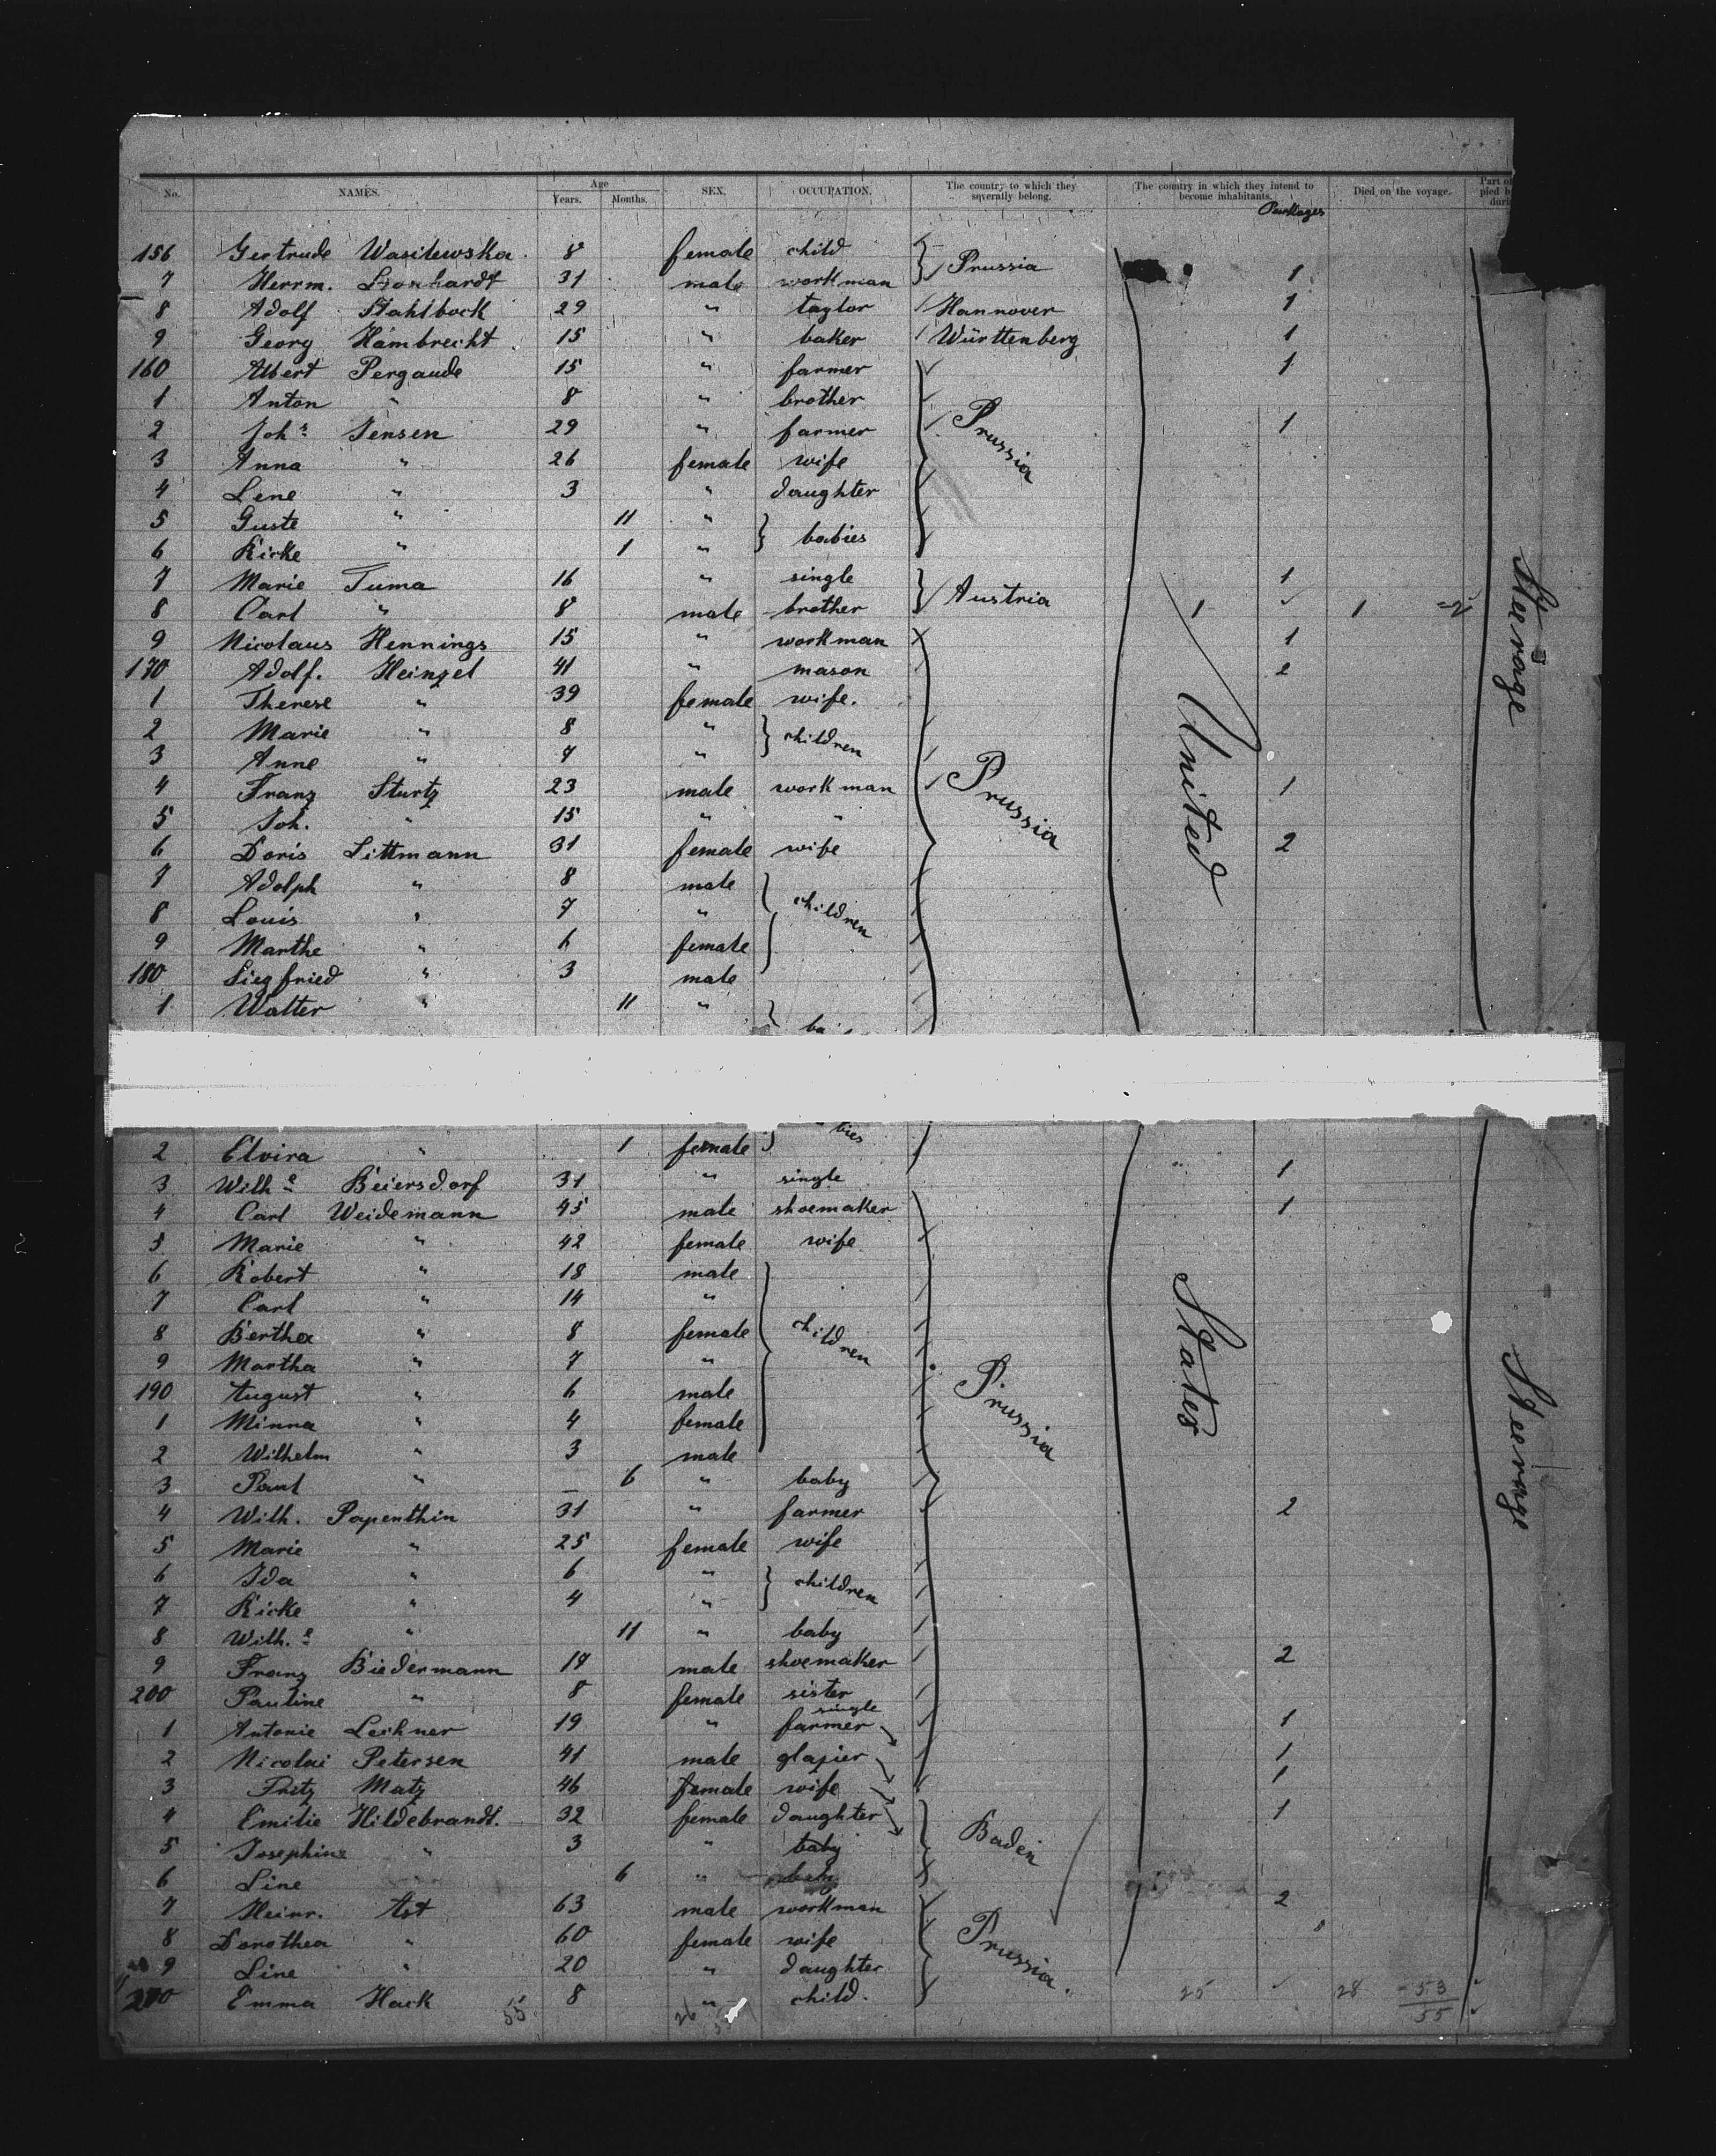 No. NAMES. Age Years. Months. SEX. OCCUPATION. The country to which they severally belong. The country in which they intend to become inhabitants. Died on the voyage. Part of
Packages
156 Gertrude Wasilewska 8 female child Prussia
7 Herrm. Leonhardt 31 male workman 1
8 Adolf Stahlbock 29 " taylor Hannover 1
9 Georg Hambrecht 15 " baker Württenberg 1
160 Albert Pergaude 15 " farmer 1
1 Anton " 8 " brother Prussia
2 Johs Jensen 29 " farmer 1
3 Anna " 26 female wife
4 Lene " 3 " daughter
5 Guste " 11 " babies
6 Ricke " 1 "
7 Marie Tuma 16 " single Austria 1
8 Carl " 8 male brother 1 1 =2
9 Nicolaus Hennings 15 " workman 1
170 Adolf. Heinzel 41 " mason 2
1 Therese " 39 female wife.
2 Marie " 8 " children
3 Anne " 7 "
4 Franz Sturtz 23 male workman Prussia 1
5 Joh. " 15 " "
6 Doris Littmann 31 female wife 2
7 Adolph " 8 male children
8 Louis " 7 "
9 Marthe " 6 female
180 Siegfried " 3 male
1 Walter " 11 " babies
United
Steerage
2 Elvira " 1 female
3 Wilhe Beiersdorf 31 " single 1
4 Carl Weidemann 45 male shoemaker 1
5 Marie " 42 female wife
6 Robert " 18 male children
7 Carl " 14 "
8 Bertha " 8 female
9 Martha " 7 "
190 August " 6 male Prussia
1 Minna " 4 female
2 Wilhelm " 3 male
3 Paul " — 6 " baby
4 Wilh. Papenthin 31 " farmer 2
5 Marie " 25 female wife
6 Ida " 6 " children
7 Ricke " 4 "
8 Wilh.e " 11 " baby
9 Franz Biedermann 17 male shoemaker 2
200 Pauline " 8 female sister
single
1 Antonie Lechner 19 " farmer 1
2 Nicolai Petersen 41 male glazier 1
3 Fritz Matz 46 female wife 1
4 Emilie Hildebrandt. 32 female daughter 1
5 Josephine " 3 " baby Baden
6 Line " 6 " baby
7 Heinr. Ast 63 male workman 2
8 Dorothea " 60 female wife Prussia.
9 Line " 20 " daughter
210 Emma Hack 8 " child.
States
Steerage
55 26 25 28 - 53
55